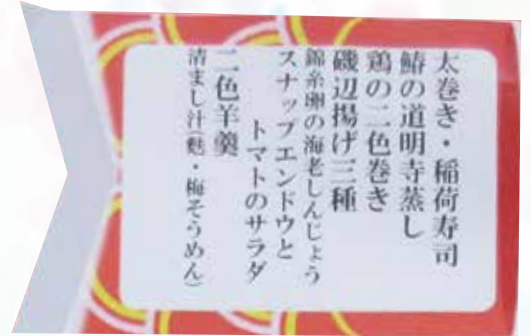 太巻き・稲荷寿司
鰆の道明寺蒸し
鶏の二色巻き
磯辺揚げ三種
錦糸卵の海老しんじょう
スナップエンドウと
トマトのサラダ
二色羊羹
清まし汁(麩・梅そうめん)